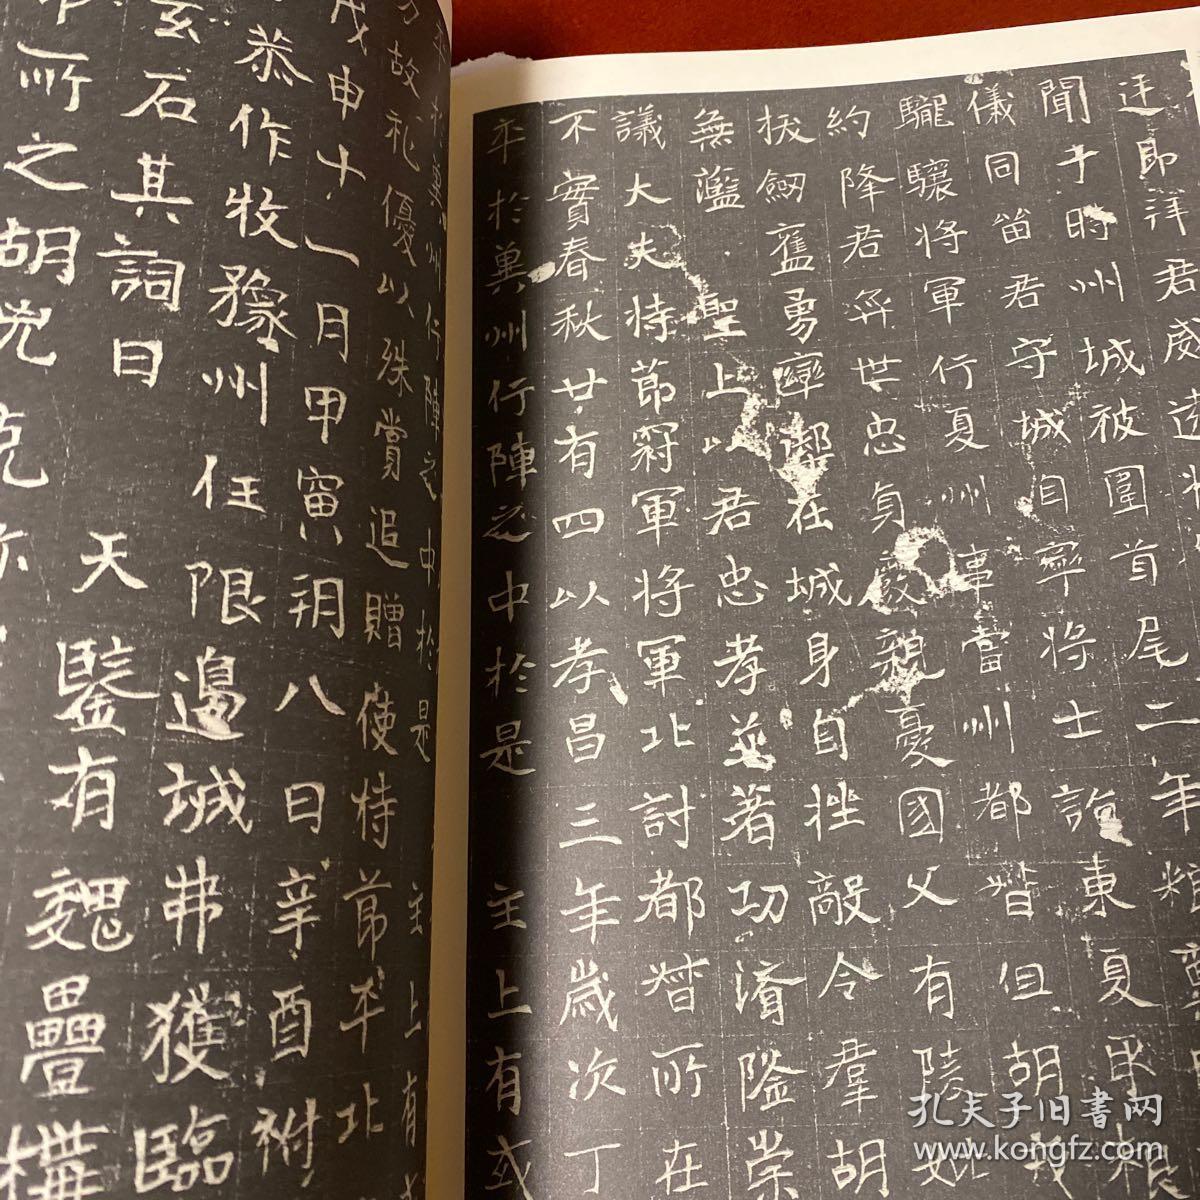 迋即拜君威遠将
聞于時州城被圍首尾二年粮
儀同笛君守城自寧將士詣東夏甲根
驪驤将軍行夏州事當州都督但胡戎
約降君弈世忠貞親憂國父有陵如
拔劒舊勇在城身自挫敵令羣胡
無濫 聖上以君忠孝並著功済隆崇
議大夫持節冠軍将軍北討都督所在
不實春秋廿有四以孝昌三年歲次丁
卒於兾州行陣之中於是 主上有或
於兾州行陣之中於是 主上有
故礼優以殊賞追贈使持節平北
戊申十一月甲寅朔八日辛酉祔
恭作牧豫州 任限邊城弗獲臨
玄石其詞曰 天鑒有魏疊構
所之胡兇克
孔夫子旧书网
www.kongfz.com